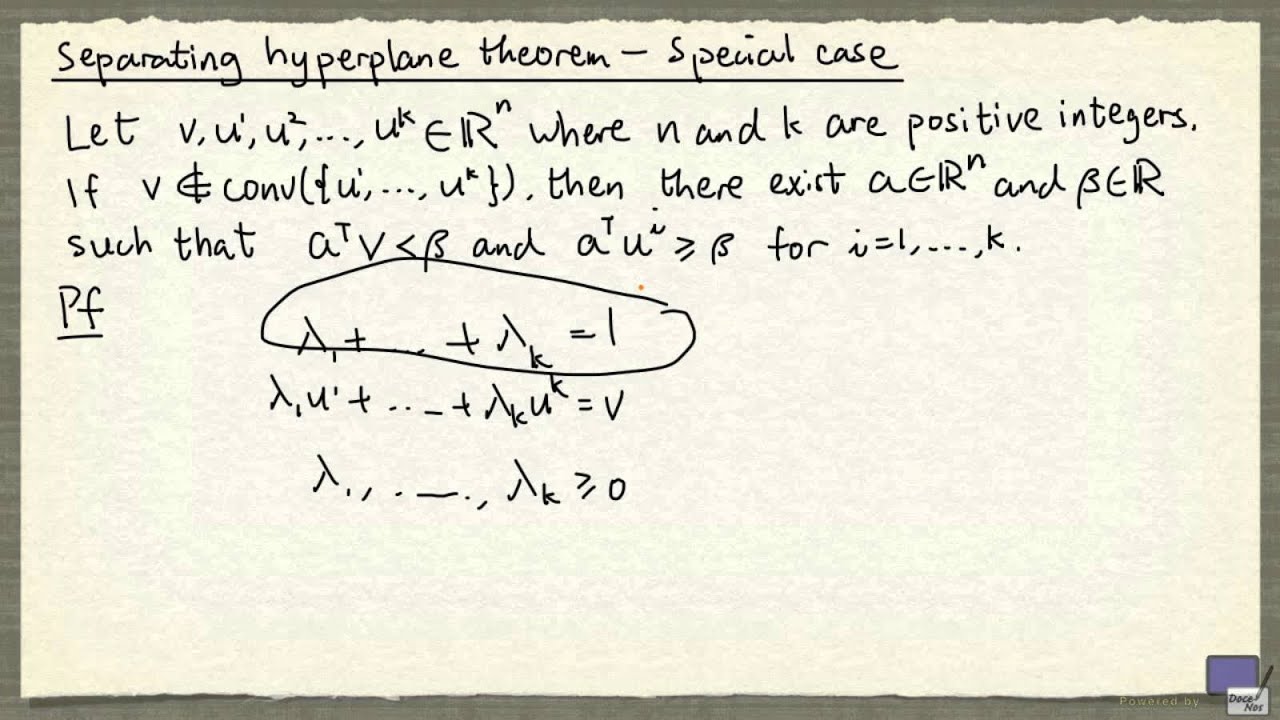 Separating hyperplane theorem – Special case
Let v, u¹, u², ..., uᵏ ∈ ℝⁿ where n and k are positive integers.
If v ∉ conv({u¹, ..., uᵏ}), then there exist a ∈ ℝⁿ and β ∈ ℝ
such that aᵀv < β and aᵀuⁱ ≥ β for i=1, ..., k.
Pf
λ₁ + ... + λₖ = 1
λ₁u¹ + ... + λₖuᵏ = v
λ₁, ..., λₖ ≥ 0
Powered by
Doce
Nos